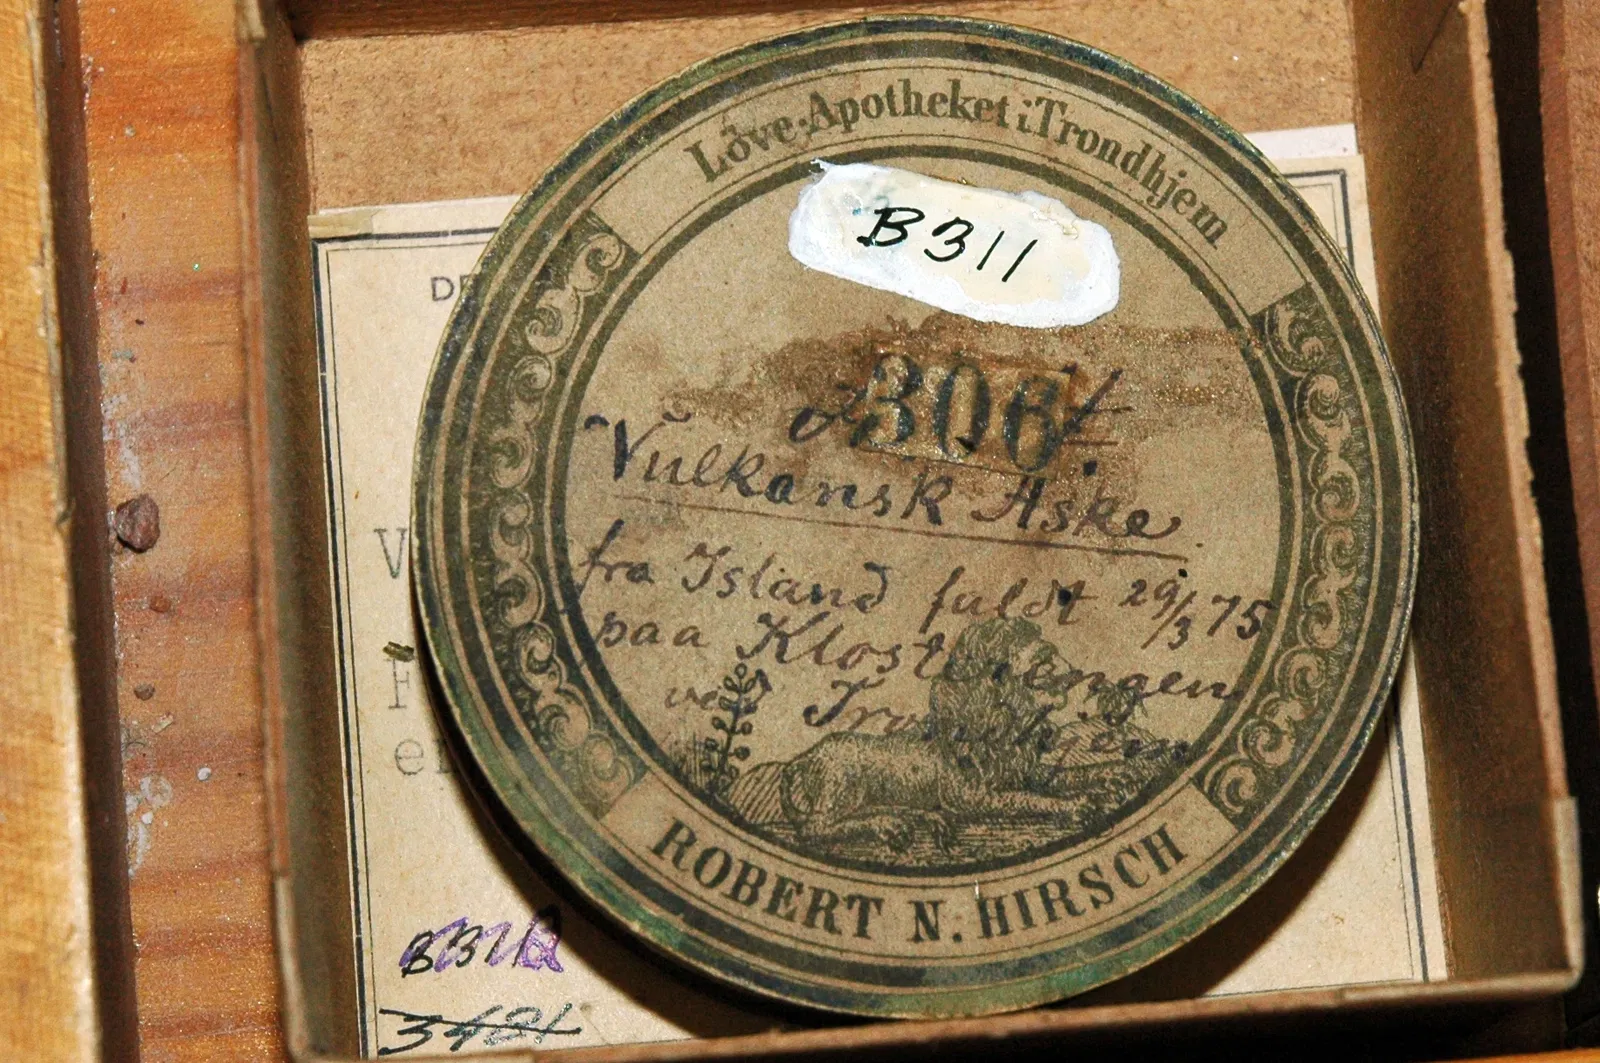 Löve-Apotheket i Trondhjem
B311
306
Vulkansk Aske
fra Island faldt 29/3 75
paa Klosterengen
ved Trondhjem
ROBERT N. HIRSCH
3421